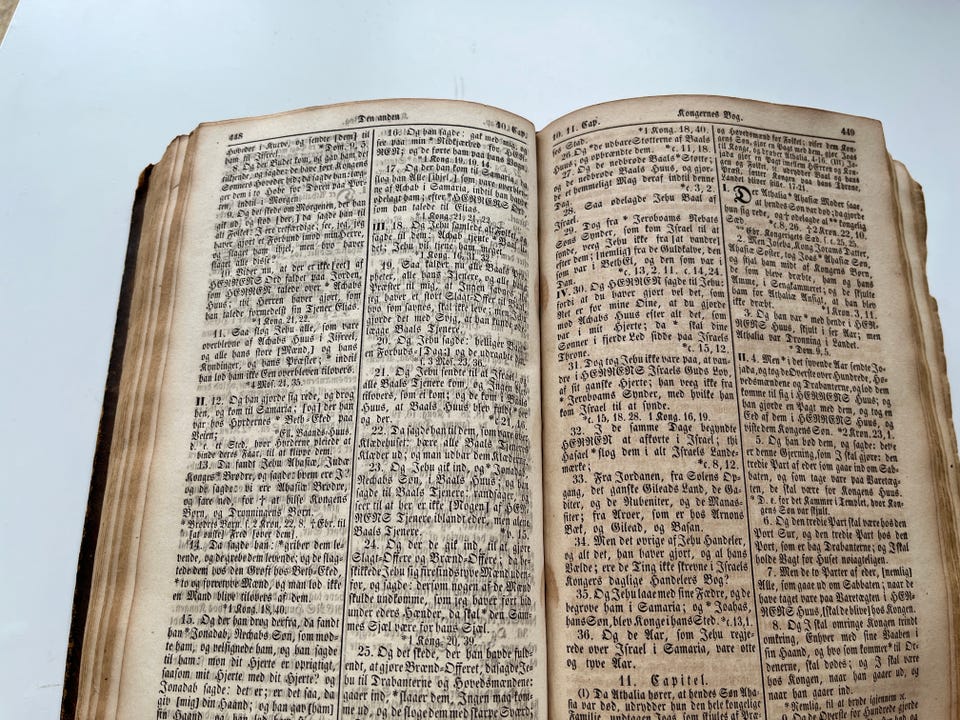 448
Den anden
10. Cap.
hoveder i Kurve, og sendte [dem] til
ham til Jisreel. * Dom. 9, 5.
8. Og der Budet kom, og gav ham det
indtil i Morgen.
9. Og det skede om Morgenen, der han
gik ud, og stod [der,] da sagde han til
alt Folket: I ere retfærdige; see, jeg, jeg
haver gjort et Forbund imod min Herre,
og slaget ham ihjel, men hvo haver
slaget alle disse?
10. Vider nu, at der er ikke [eet] af
HERRENS Ord faldet paa Jorden,
som HERREN talede over * Achabs
Huus; thi Herren haver gjort, som
han talede formedelst sin Tjener Elias.
* 1 Kong. 21, 22.
11. Saa slog Jehu alle, som vare
overblevne af Achabs Huus i Jisreel,
og alle hans store [Mænd,] og hans
Kyndinger, og hans Præster; indtil
han lod ham ikke Een overbleven tilovers.
* 4 Mos. 21, 35.
II. 12. Og han gjorde sig rede, og drog
hen, og kom til Samaria; [og] der han
var hos Hyrdernes * Beth-Eked paa
Veien; * El. Baands-Huus,
d. e. et Sted, hvor Hyrderne pleiede at
binde deres Faar, til at klippe dem.
13. Da fandt Jehu Ahasiæ, Judæ
Konges * Brødre, og sagde: hvem ere I?
og de sagde: vi ere Ahasiæ Brødre,
og fare ned, for † at hilse Kongens
Børn, og Dronningens Børn.
* Brøders Børn. s. 2 Kron. 22, 8. † Ebr. til
[at ønske] Fred [over dem].
14. Da sagde han: * griber dem le-
vende, og de grebe dem levende; og de slag-
tede dem hos den Grøft hos Beth-Eked,
* to og fyrretyve Mænd, og man lod ikke
en Mand blive tilovers af dem.
* 1 Kong. 18, 40.
15. Og der han drog derfra, da fandt
han * Jonadab, Rechabs Søn, som mød-
te ham, og velsignede ham, og han sagde
til ham: mon dit Hjerte er oprigtigt,
saasom mit Hjerte med dit Hjerte? og
Jonadab sagde: det er; er det saa, da
giv [mig] din Haand; og han gav [ham]
16. Og han sagde: gak med mig,
RENS; og de førte ham paa hans Vogn.
* 1 Kong. 19, 10. 14.
17. Og der han kom til Samaria, da
slog han Alle [ihjel,] som vare overblevne
af Achab i Samaria, indtil han havde
ødelagt ham; efter * HERRENS Ord,
som han talede til Elias.
* 1 Kong. 21, 21. 22.
III. 18. Og Jehu samlede alt Folket, og
sagde til dem: Achab tjente * Baal lidet,
Jehu vil tjene ham meget.
* 1 Kong. 16, 31. 32.
19. Saa kalder nu alle Baals Pro-
pheter, alle hans Tjenere, og alle hans
Præster til mig,
jeg haver et stort Slagt-Offer til Baal,
hvo som savnes, skal ikke leve; men Jehu
gjorde det med Svig, at han kunde øde-
lægge Baals Tjenere.
20. Og Jehu sagde: helliger Baal
en Forbuds-[Dag;] og de udraabte [den].
* s. 3 Mos. 23, 36.
21. Og Jehu sendte til al Israel, og
alle Baals Tjenere kom, og en Ingen var
tilovers, som ei kom; og de kom i Baals
Huus, at Baals Huus blev fuldt
* c. 21, 16.
22. Da sagde han til dem, som vare over
Klædehuset: bærer alle Baals Tjenere
Klæder ud; og man udbar dem Klæderne.
23. Og Jehu gik ind, og * Jonadab,
Rechabs Søn, i Baals Huus; og han
sagde til Baals Tjenere: randsager, og
seer til at her er ikke [Nogen] af HER-
RENS Tjenere iblandt eder, men alene
Baals Tjenere. * v. 15.
24. Og der de gik ind, til at gjøre
Slagt-Offere og Brænd-Offere; da be-
stikkede Jehu sig fiirsindstyve Mænd uden-
for, og sagde: dersom nogen af de Mænd
skulde undkomme, som jeg haver ført hid
under eders Hænder, da skal * den Sam-
mes Sjæl være for hans Sjæl.
* 1 Kong. 20, 39.
25. Og det skede, der han havde fuld-
endt, at gjøre Brænd-Offeret, da sagde Je-
hu til Drabanterne og Hovedsmændene:
gaaer ind, * slaaer dem, Ingen maa kom-
me ud, og de sloge dem med skarpe Sværd,
10. 11. Cap.
Kongernes Bog.
449
* 1 Kong. 18, 40.
26. Og de udbare Støtterne af Baals
Huus, og opbrændte dem. * c. 11, 18.
27. Og de nedbrøde Baals * Støtte;
og de nedbrøde Baals Huus, og gjor-
de hemmeligt Mag deraf indtil denne
Dag. * c. 3, 2.
28. Saa ødelagde Jehu Baal af
Israel.
29. Dog fra * Jeroboams Nebats
Søns Synder, som kom Israel til at
synde, veg Jehu ikke fra [at vandre]
efter dem; [nemlig] fra de Guldkalve, den
som var i BethEl, og den som var i
Dan. * c. 13, 2. 11. c. 14, 24.
IV. 30. Og HERREN sagde til Jehu:
fordi at du haver gjort vel det, som
Ret er for mine Øine, at du gjorde
mod Achabs Huus efter alt det, som
var i mit Hjerte; da * skal dine
Sønner i fjerde Led sidde paa Israels
Throne. * c. 15, 12.
31. Dog tog Jehu ikke vare paa, at van-
dre i HERRENS Israels Guds Lov,
af sit ganske Hjerte; han veeg ikke fra
* Jeroboams Synder, med hvilke han
kom Israel til at synde.
* c. 15, 18. 28. 1 Kong. 16, 19.
32. I de samme Dage begyndte
HERREN at afkorte i Israel; thi
Hasael * slog dem i alt Israels Land-
mærke; * c. 8, 12.
33. Fra Jordanen, fra Solens Op-
gang, det ganske Gileads Land, de Ga-
diter, og de Rubeniter, og de Manas-
siter; fra Aroer, som er hos Arnons
Bæk, og Gilead, og Basan.
34. Men det øvrige af Jehu Handeler,
og alt det, han haver gjort, og al hans
Vælde; ere de Ting ikke skrevne i Israels
Kongers daglige Handelers Bog?
35. Og Jehu laae med sine Fædre, og de
begrove ham i Samaria; og * Joahas,
hans Søn, blev Konge i hans Sted. * c. 13, 1.
36. Og de Aar, som Jehu regje-
rede over Israel i Samaria, vare otte
og tyve Aar.
11. Capitel.
(I) Da Athalia hører, at hendes Søn Aha-
sia var død, udrydder hun den hele kongelige
Familie, undtagen Joas, som skjules af Præs-
og Hovedsmænd for Folket; viser dem Kon-
gens Søn, gjør en Pagt med dem, og
I. Der Athalia * Ahasiæ Moder saae,
at hendes Søn var død; da gjorde
hun sig rede, og † ødelagde al ** kongelig
Sæd. * c. 8, 26. † 2 Kron. 22, 10.
** Ebr. Kongerigets Sæd. s. c. 25, 25.
2. Men Joseba, Kong Jorams Datter,
Ahasiæ Søster, tog Joas * Ahasiæ Søn,
og stjal ham midt af Kongens Børn,
de som bleve dræbte, ham og hans
Amme, i Sengkammeret; og de skjulte
ham for Athaliæ Ansigt, at han blev
ikke dræbt. * 1 Kron. 3, 11.
3. Og han var * med hende i HER-
RENS Huus, skjult i sex Aar; men
Athalia var Dronning i Landet.
* Dom. 9, 5.
II. 4. Men * i det syvende Aar sendte Jo-
jada, og tog de Øverste over Hundrede, Ho-
vedsmændene og Drabanterne, og lod dem
komme til sig i HERRENS Huus; og
han gjorde en Pagt med dem, og tog en
Eed af dem i HERRENS Huus, og
viiste dem Kongens Søn. * 2 Kron. 23, 1.
5. Og han bød dem, og sagde: det
er denne Gjerning, som I skal gjøre: den
tredie Part af eder som gaae ind om Sab-
baten, og som tage vare paa Varetæg-
ten, de skal være for Kongens Huus.
* D. e. for det Kammer i Templet, hvor Kon-
gens Søn var skjult.
6. Og den tredie Part skal være hos den
Port Sur, og den tredie Part hos den
Port, som er bag Drabanterne; og I skal
holde Vagt for Huset nøiagteligen.
7. Men de to Parter af eder, [nemlig]
Alle, som gaae ud om Sabbaten; naar de
have taget vare paa Varetægten i HER-
RENS Huus, [skal de blive] hos Kongen.
8. Og I skal omringe Kongen trindt
omkring, Enhver med sine Vaaben i
sin Haand, og hvo som kommer * til Or-
denerne, skal dødes; og I skal være
hos Kongen, naar han gaaer ud, og
naar han gaaer ind.
* Nemlig at bryde igjennem ɔc.
9. Og de Øverste for Hundrede gjorde